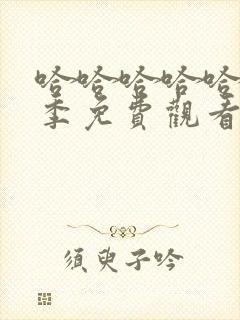 哈哈哈哈哈
季免費觀看
須臾子吟